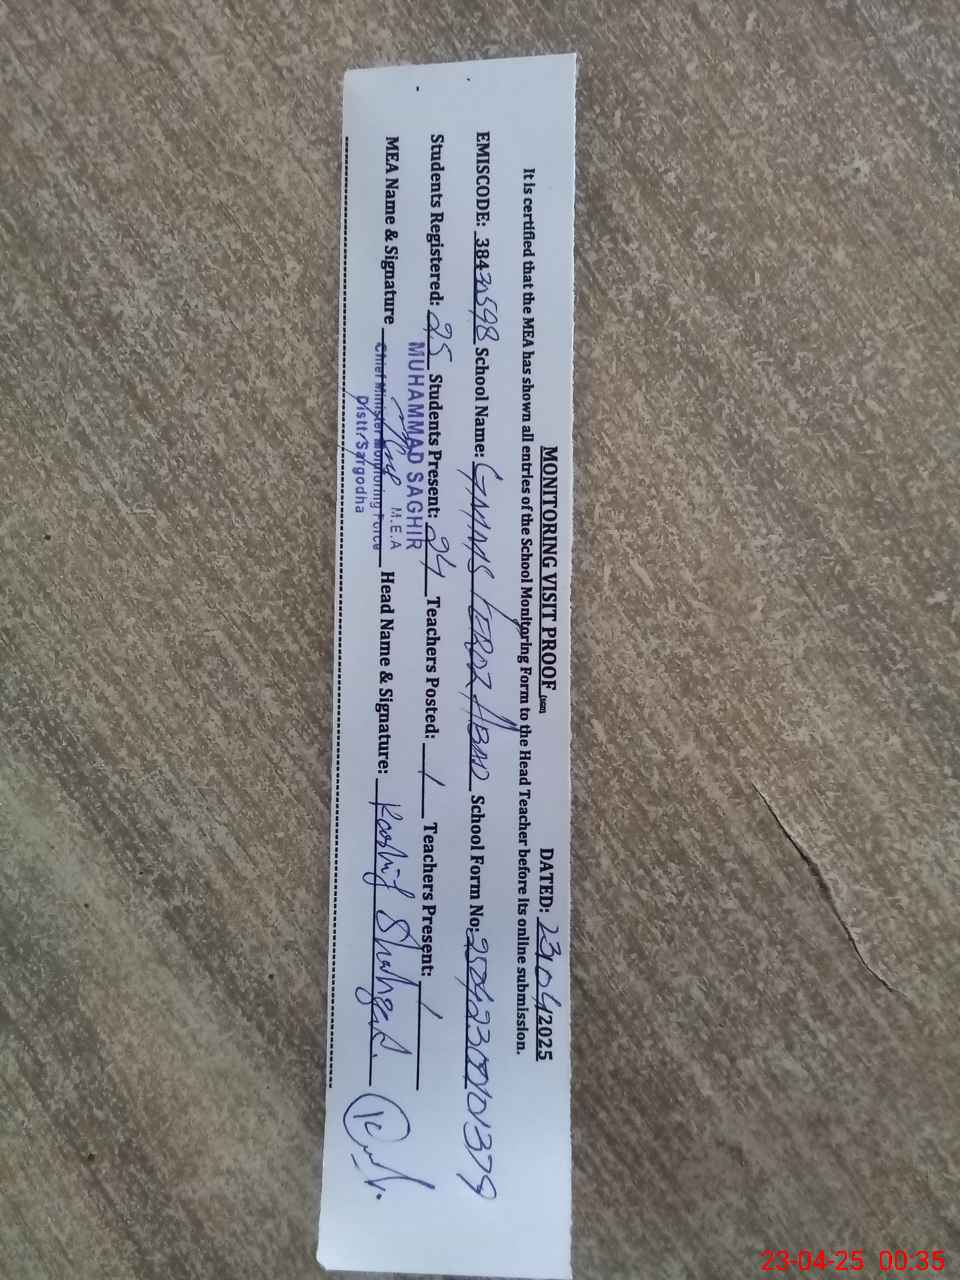 MONITORING VISIT PROOF (SGD) DATED: 23/04/2025
It is certified that the MEA has shown all entries of the School Monitoring Form to the Head Teacher before its online submission.
EMISCODE: 38430598 School Name: GMMPS FEROZ ABAD School Form No: 2504230101379
Students Registered: 25 Students Present: 24 Teachers Posted: 1 Teachers Present: 1
MUHAMMAD SAGHIR
M.E.A
MEA Name & Signature Chief Minister Monitoring Force Head Name & Signature: Kashif Shahzad.
Distt: Sargodha
23-04-25 00:35